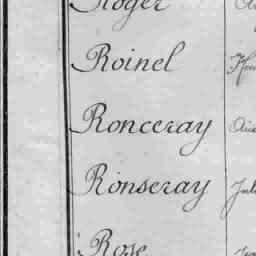 Roger
Roinel
Ronceray
Ronseray
Rose